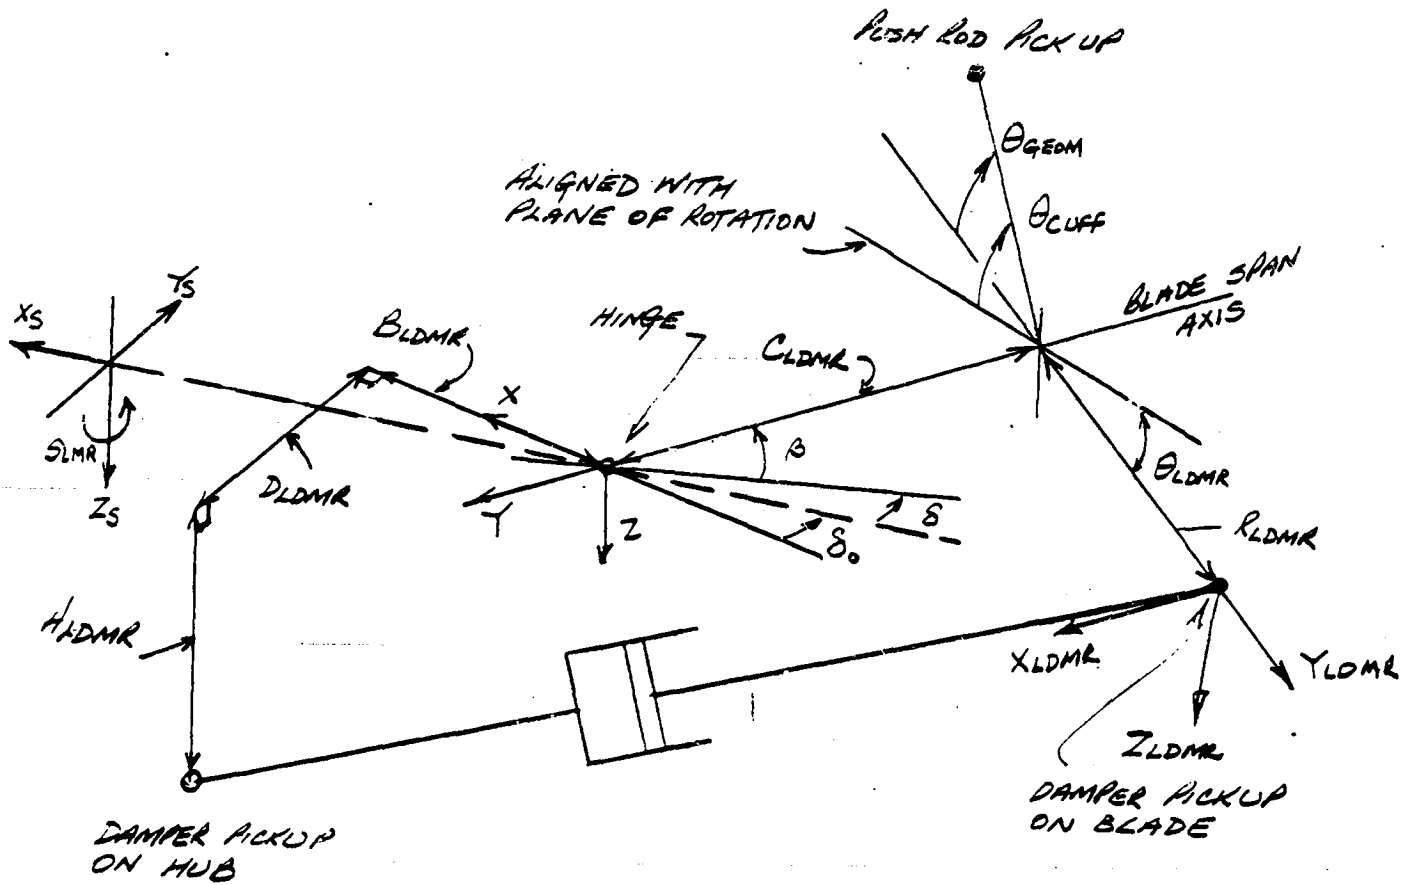 PUSH ROD PICKUP
θGEOM
ALIGNED WITH
PLANE OF ROTATION
θCUFF
BLADE SPAN
AXIS
YS
XS
BLDMR
HINGE
CLDMR
X
β
ΩLMR
ZS
DLDMR
Y
Z
δ
δ0
θLDMR
RLDMR
HLDMR
XLDMR
YLDMR
ZLDMR
DAMPER PICKUP
ON BLADE
DAMPER PICKUP
ON HUB